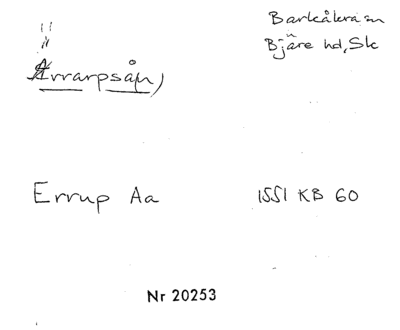 Barkåkra sn
Bjäre hd, Sk
Ärrarpsån)
Errup Aa 1551 KB 60
Nr 20253